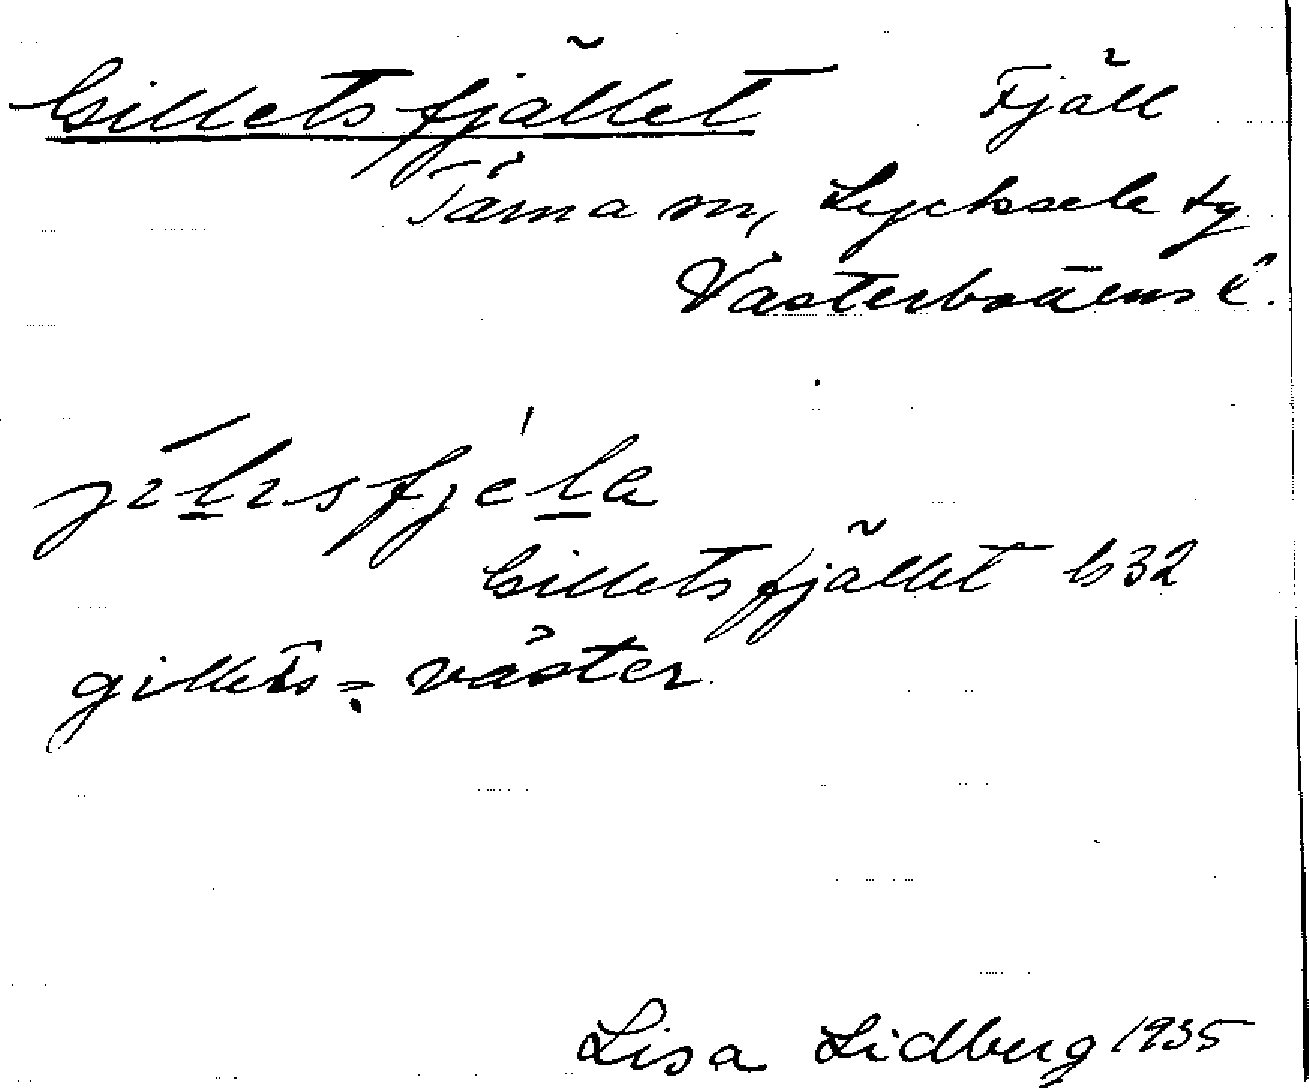 Gilletsfjället Fjäll
Tärna sn, Lycksele tg
Västerbottens l.
jìl̲ısfjél̲a
Gilletsfjället G32
gillets = väster
Lisa Lidberg 1935